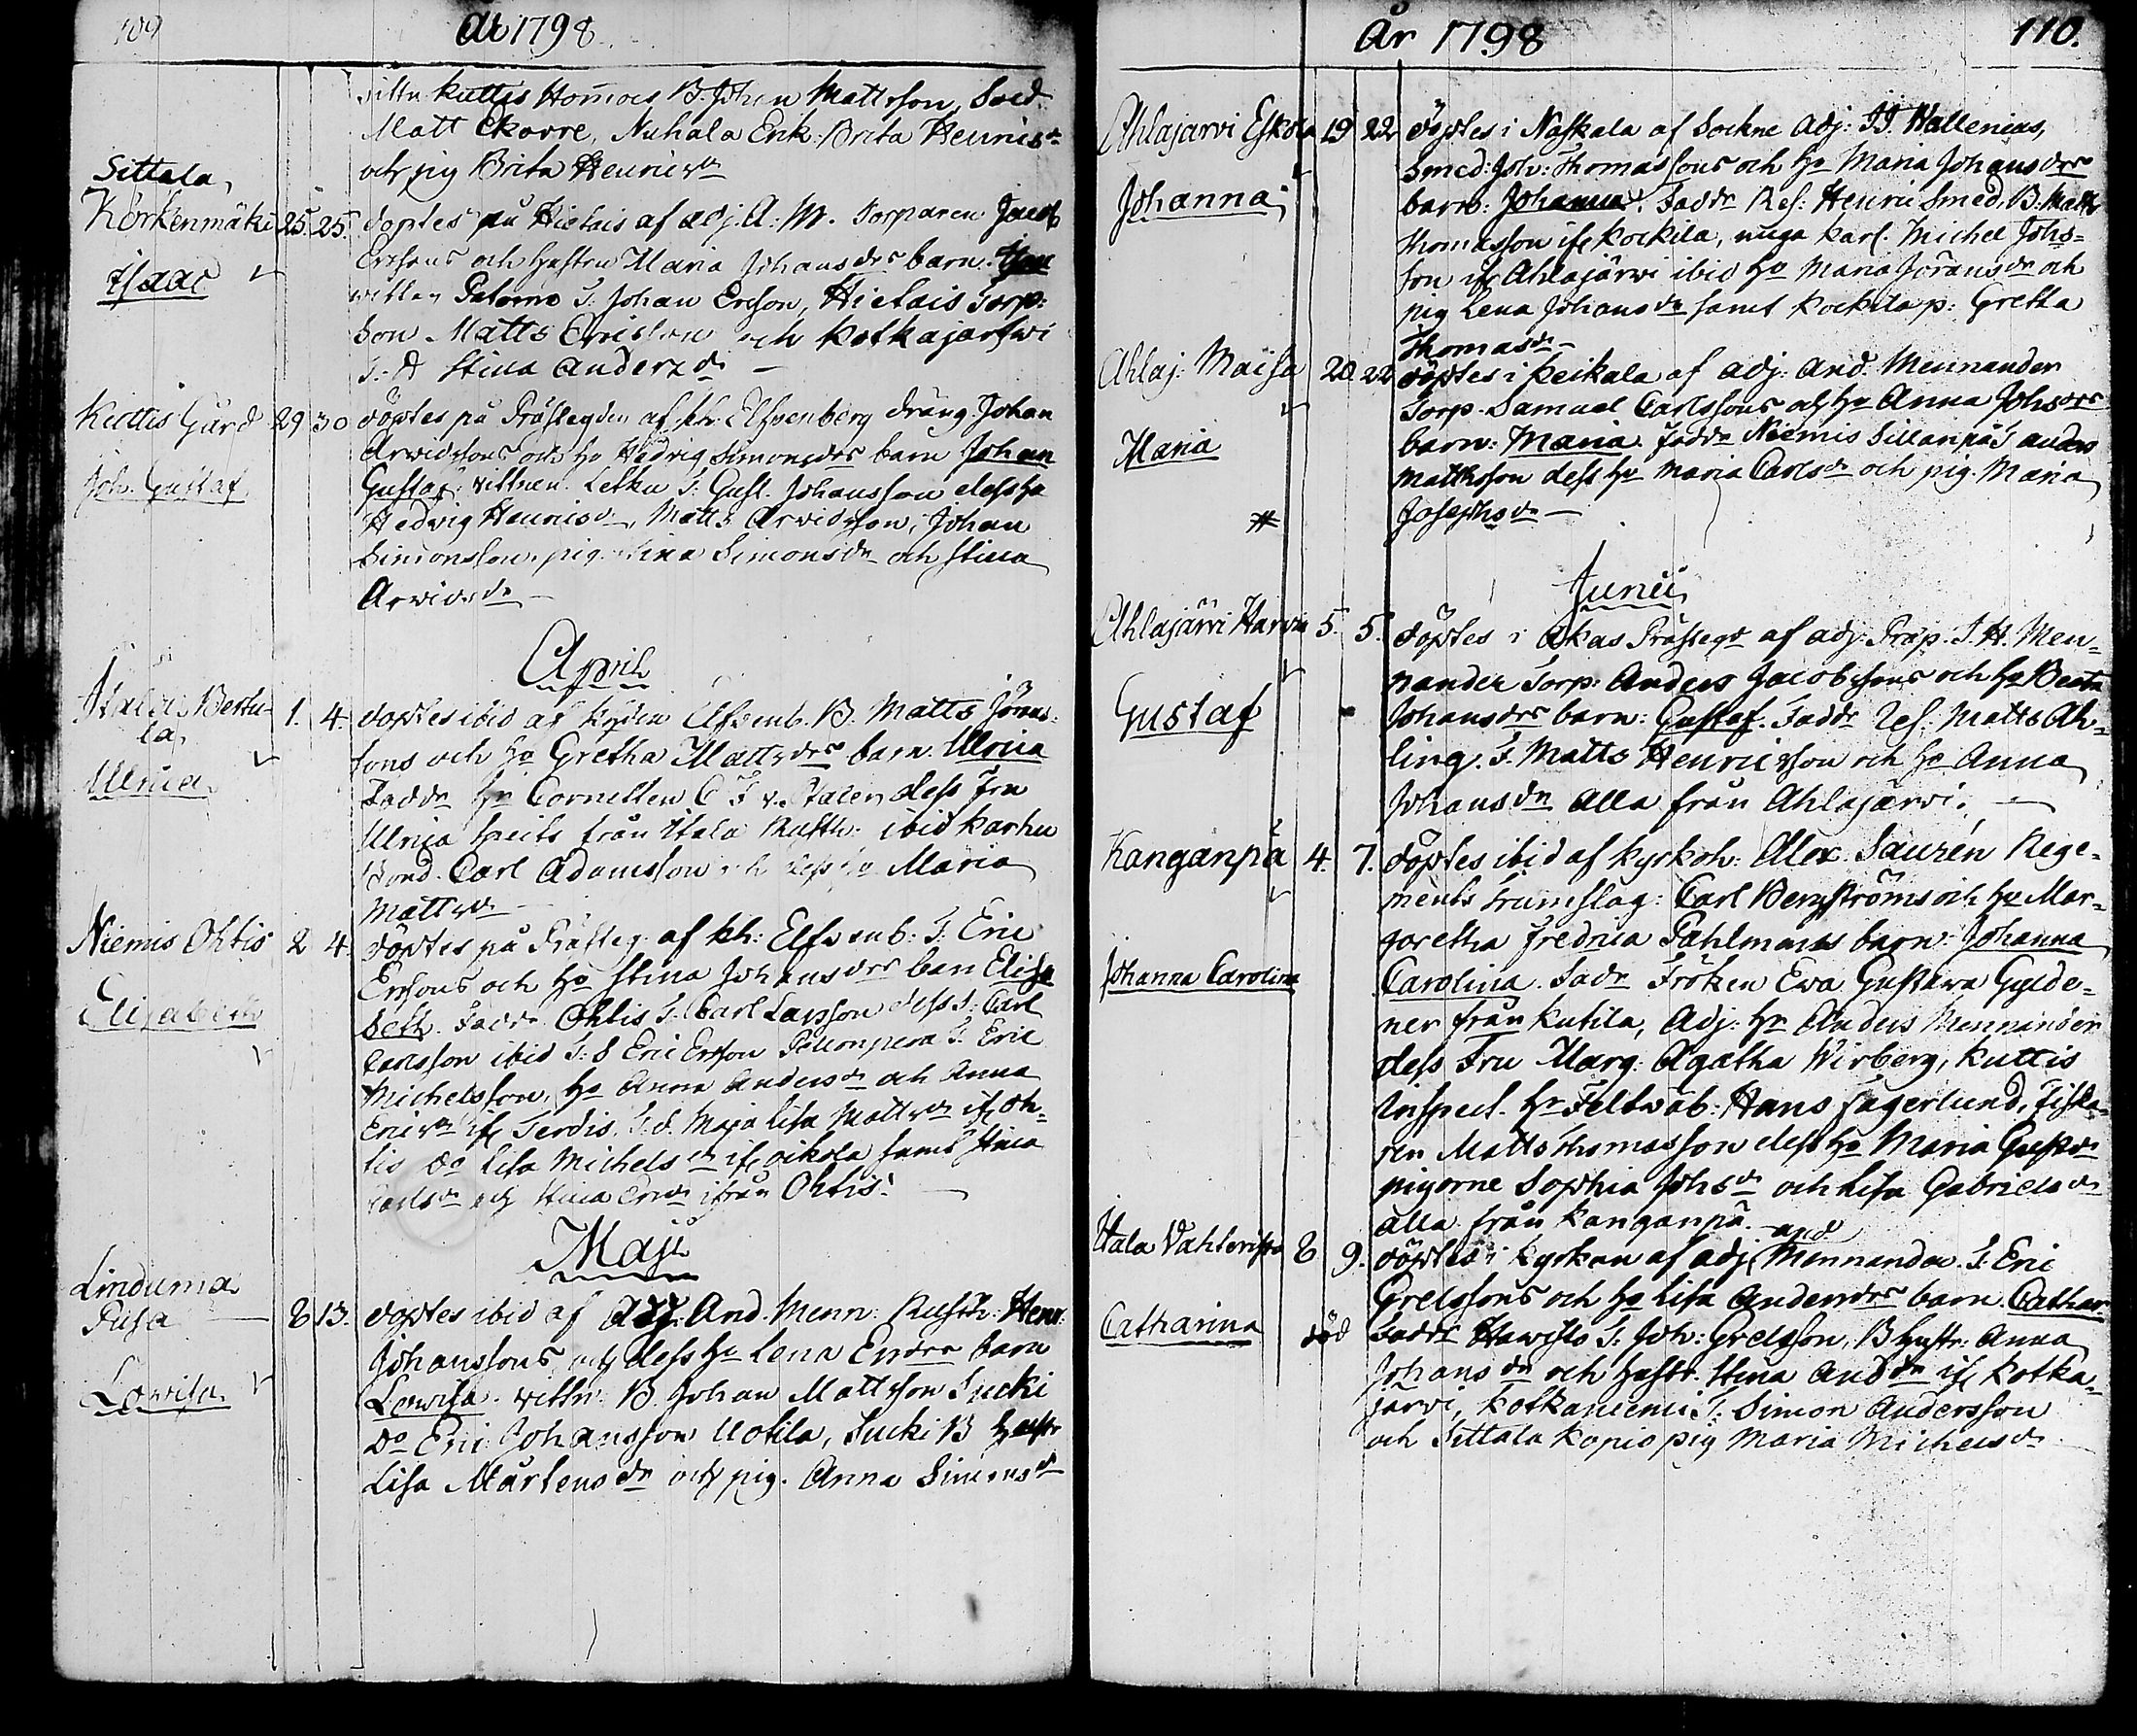 109 År 1798
Kuttis Hom̄ocs B. Johan Mattsson, Sold.
Matt Ekorre, Nuhala Erik. Brita Henrics dr
och pig Brita Henrics dr
Sittala,
Körkenmäki 25. 25. döptes på Hietais af adj. A. M. Torparen Jacob
Ersons och hustru Maria Johans drs barn. Isaac
Isaac
Palomo T. Johan Erson, Hietais Torp:
Son Matts Ericsson och Kotkajärfwi
Stina Anders dr
Kuttis Gård 29 30 döptes på Prästegden af kh. Elfvenberg dräng Johan
Arwidssons och ho Hedvig Simons drs barn Johan
Joh. Gustaf
Gustaf: vittnen. Letku T. Gust. Johansson dess ho
Hedvig Henrics dr, Matts Arvidsson, Johan
Simonsson, pig. Stina Simons dr och Stina
Arvids dr
April
Bertu-
la, 1. 4. döptes ibid af Elfvenb. B. Matts Jörans
sons och ho Gretha Matts drs barn. Ulrica
Ulrica
Fadd. hr Cornetten C F v. Stalen dess Fru
Ulrica från Itala Rusth. ibid Karhu
Bond. Carl Adamsson och dess ho Maria
Matts dr
Niemis Ohtis 2 4. döptes på Prästeg. af kh: Elfvenb: T. Eric
Ersons och ho Stina Johans drs barn Elisa
Elisabeth
beth. Fadd. Ohtis T. Carl Larsson dess S. Carl
Carlsson ibid T: S Eric Erson Pellonpera T. Eric
Michelsson, ho Anna Anders dr och Anna
Erics dr if. Terdis. T. d. Maja Lisa Matts dr if. Oh-
tis do Lisa Michels dr if. samt Stina
Carls dr och Stina Erics dr ifrån Ohtis.
Maji
Linduma
Pusa 8 13. döptes ibid af Adj. And. Menn: Rusth: Henr:
Johanssons och dess ho Lena Ers drs barn
Lovisa
Lovisa. vittn: B. Johan Mattsson Sucki
Do Eric Johansson Uotila, Sucki B hustr.
Lisa Mårtens dr och pig. Anna Simons dr
År 1798 110.
Ahlajärvi Eskola 19 22 döptes i Naskala af Sockne Adj: Wallenius,
Smed: Joh: Thomassons och ho Maria Johans drs
Johanna
barn: Johanna. Fadd. Res: Henric Smed, B. Matts
Thomasson if. Kockila, unga karl. Michel Johs-
son if. Ahlajärvi ibid ho Maria Jörans dr och
pig Lena Johans dr samt Kockila p: Gretha
Thomas dr
Ahlaj: Maisa 20. 22 döptes i Keikala af adj: And. Mennander
Torp. Samuel Carlssons och ho Anna Johs drs
Maria
barn: Maria. Fadd. Niemis Sillanpä T Anders
Matthsson dess ho Maria Carls dr och pig. Maria
Josephs dr
Junii
Ahlajärvi Harvia 5. 5. döptes i Akas Prästegd af adj. Präp. I. H. Men-
nander Torp: Anders Jacobssons och ho Beata
Gustaf
Johans drs barn: Gustaf. Fadd. Res. Matts Ah-
ling. T. Matts Henricsson och ho Anna
Johans dr alla från Ahlajärvi.
Kanganpä 4. 7. döptes ibid af kyrkoh: Alex. Saurén Rege-
ments trumslag: Carl Bergströms och ho Mar-
garetha Fredrica Pahlmans barn: Johanna
Johanna Carolina
Carolina. Fadr Fröken Ewa Gustawa Gylde-
ner från Kutila, Adj: hr Anders Mennander
dess Fru Marg: Agatha Wirberg, Kuttis
Inspect. hr Feltwäb: Hans Fagerlund, Fiska-
ren Matts Thomasson dess ho Maria Gust dr
pigorne Sophia Johs dr och Lisa Gabriels dr
alla från Kanganpä.
Itala 8 9. döptes i kyrkan af adj. And Mennander. T. Eric
Grelssons och ho Lisa Anders drs barn. Cathar
Catharina död
Fadd. T. Joh: Grelsson, B hustr: Anna
Johans dr och hustr. Stina And dr if. Kotka-
järvi, Kotkaniemi T: Simon Andersson
och Sittala Kopio pig Maria Michels dr